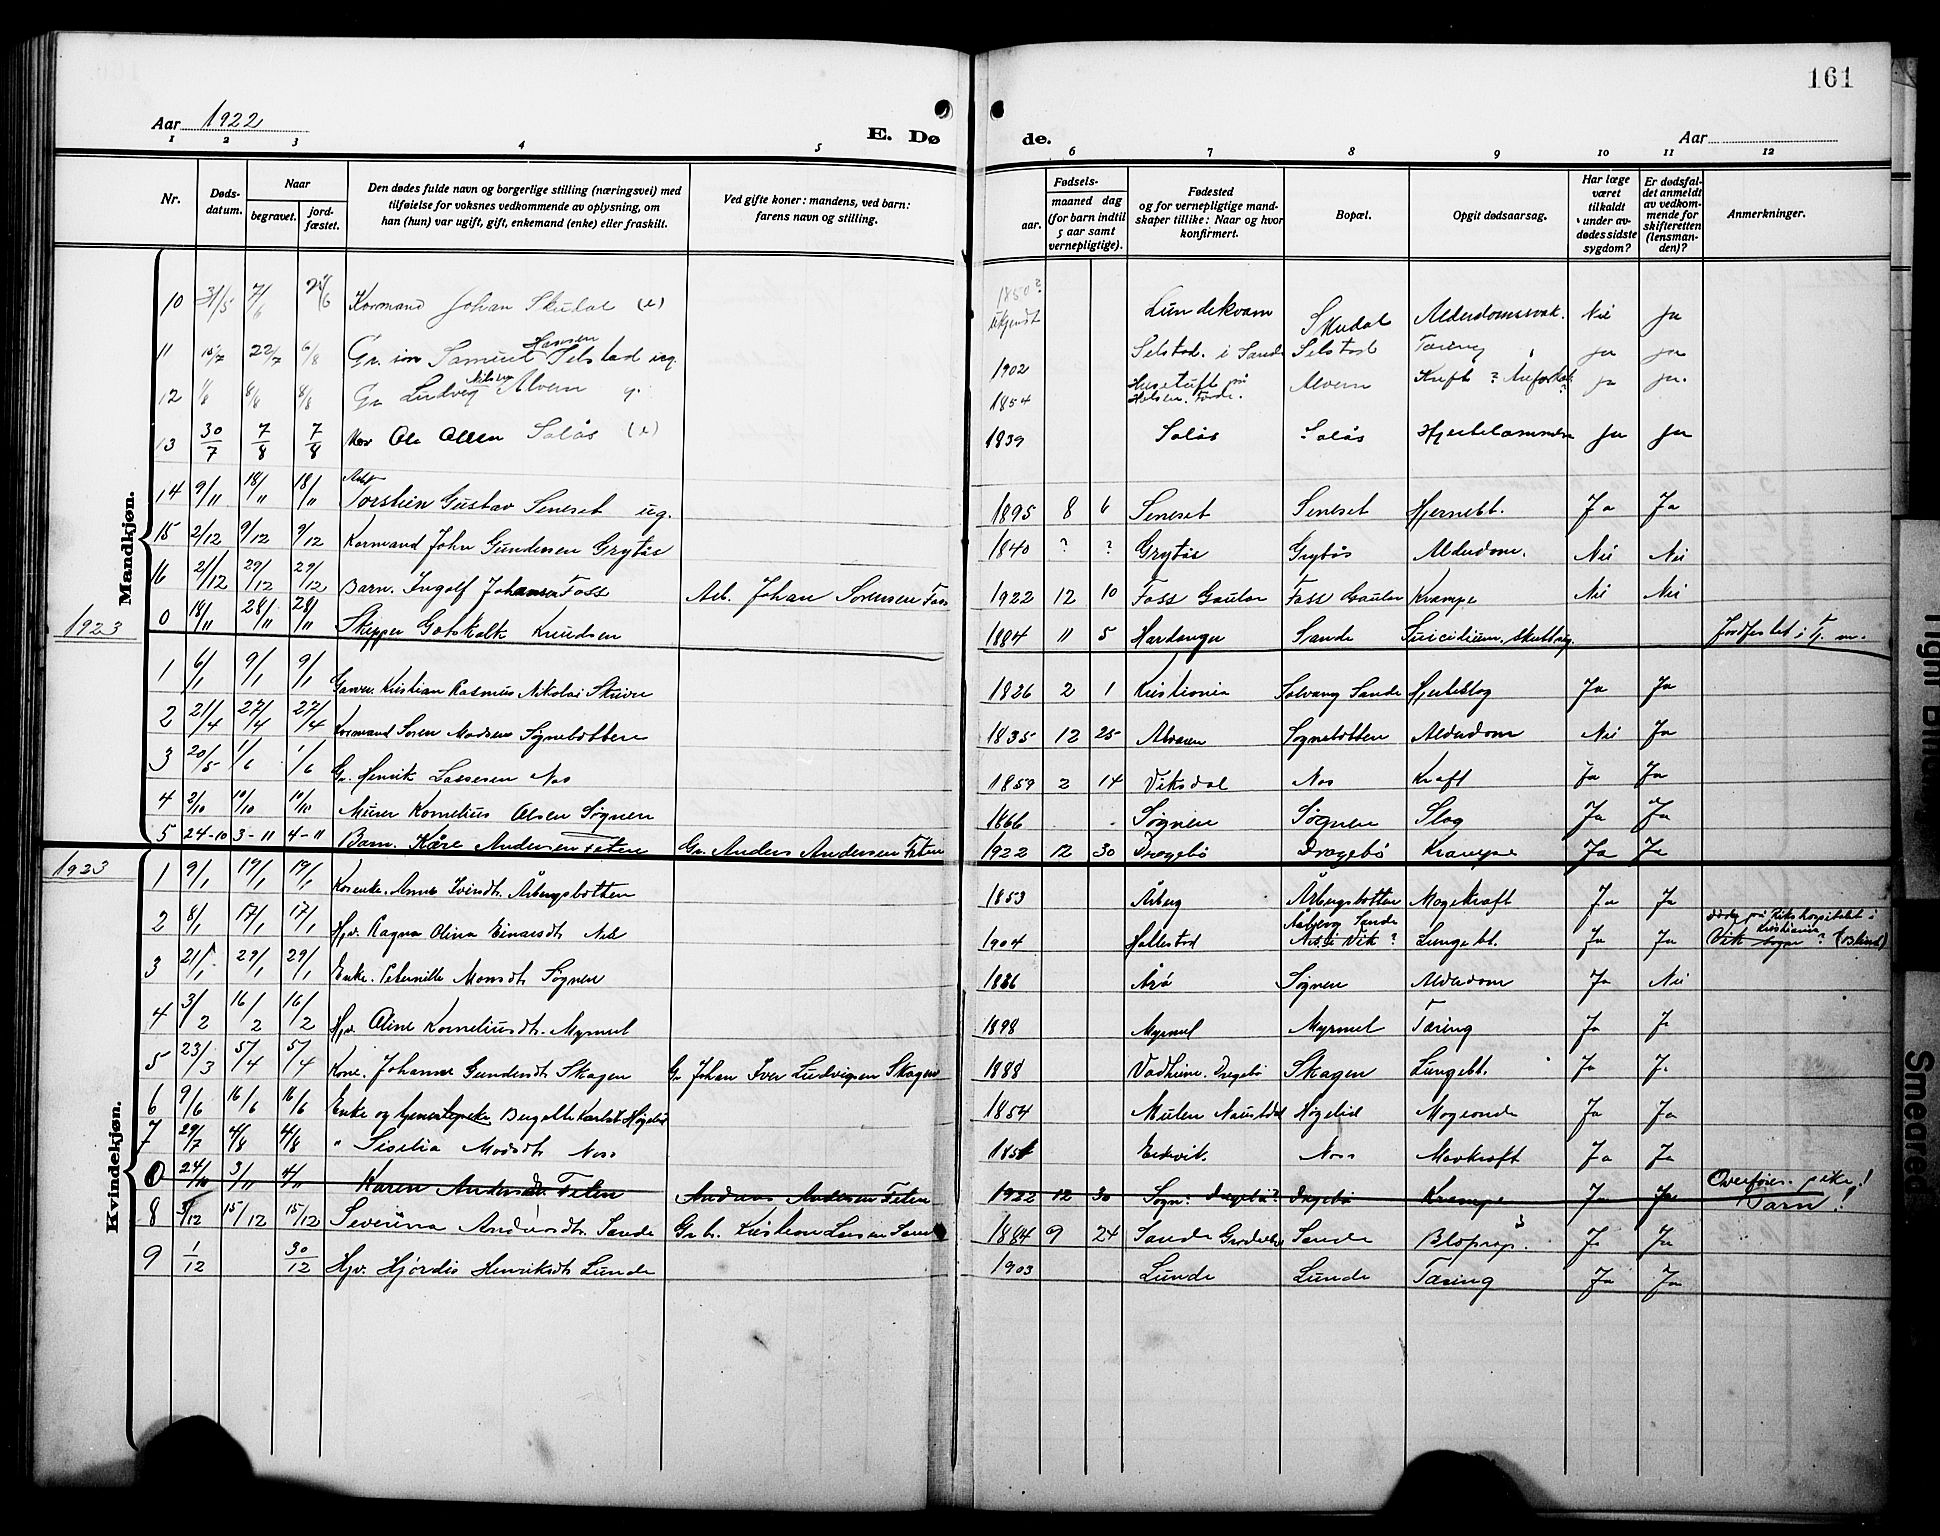 161
Aar 1922
E. Dø
de.
Aar
1 2 3 4 5 6 7 8 9 10 11 12
Nr.
Døds-
datum.
Naar
begravet.
jord-
fæstet.
Den dødes fulde navn og borgerlige stilling (næringsvei) med
tilføielse for voksnes vedkommende av oplysning, om
han (hun) var ugift, gift, enkemand (enke) eller fraskilt.
Ved gifte koner: mandens, ved barn:
farens navn og stilling.
Fødsels-
aar.
maaned dag
(for barn indtil
5 aar samt
vernepligtige).
Fødested
og for vernepligtige mand-
skaper tillike: Naar og hvor
konfirmert.
Bopæl.
Opgit dødsaarsag.
Har læge
været
tilkaldt
under av-
dødes sidste
sygdom?
Er dødsfal-
det anmeldt
av vedkom-
mende for
skifteretten
(lensman-
den)?
Anmerkninger.
Mandkjøn.
10 31/5 7/6 Kormand Johan Skudal (e) 1850? ukjendt Lundekvam Skudal Alderdomssvak. Nei ja
11 22/7 6/8 Gr. Samuel Hansen Selstad ug. 1902 Selstad i Sande Selstad Tæring ja ja
12 1/8 8/8 8/8 Gr Ludvig Nilsen Alvern g. 1854 Holsen. Førde. Alvern Kreft ? ja ja.
13 30/7 7/8 7/8 Ole Olsen Solås (e) 1839 Solås Solås ja ja
14 9/11 18/11 18/11 Arb. Torstein Gustav Seneset ug. 1895 8 6 Seneset Seneset Hjernebt. Ja Ja
15 2/12 9/12 9/12 Kormand John Gundersen Grytås 1840 ? ? Grytås Grytås Alderdom. Nei Nei
16 21/12 29/12 29/12 Barn. Ingolf Johansen Foss Arb. Johan Sørensen Foss 1922 12 10 Foss Gaular Foss Gaular Krampe Nei Nei
0 18/11 28/11 28/11 Skipper Gotskalk Knudsen 1884 11 5 Hardanger Sande Suicidium, skutt sig.
1923
1 6/1 9/1 9/1 Garver. Kristian Rasmus Nikolai Skivre 1826 2 1 Kristiania Solvang Sande Hjerteslag Ja Ja
2 21/4 27/4 27/4 Kormand Søren Madsen Sognebotten 1835 12 25 Alværen Sognebotten Alderdom Nei Ja
3 20/5 1/6 1/6 Gr. Henrik Lassesen Nos 1859 2 14 Viksdal Nos Kræft Ja Ja
4 2/10 10/10 10/10 Murer Kornelius Olsen Søgnen 1866 Søgnen Søgnen Slag Ja Ja
5 24-10 3-11 4-11 Barn. Kåre Andersen Feten Gr. Anders Andersen Feten 1922 12 30 Dragebø Dragebø Krampe Ja Ja
1923
Kvindekjøn.
1 9/1 19/1 19/1 Korenke. Anne Iversdt. Årbergsbotten 1853 Årberg Årbergsbotten Mavekræft Ja Ja
2 8/1 17/1 17/1 Hjv. Ragna Olina Einarsdt. Nes 1904 Hallestad Årberg Sande Nes i Vik ? Lungebt. Ja Ja døde på Rikshospitalet i Kristiania Vik Sogn ?
3 21/1 29/1 29/1 Enke. Peternille Monsdt. Søgnen 1836 Årø Søgnen Alderdom Ja Nei
4 3/2 16/2 16/2 Hjv. Oline Korneliusdt. Myrmel 1898 Myrmel Myrmel Tæring Ja Ja
5 23/3 5/4 5/4 Kone. Johanne Gundersdt. Skagen Gr Johan Iver Ludvigsen Skagen 1888 Vadheim. Dregebø Skagen Lungebt. Ja Ja
6 9/6 16/6 16/6 Enke og Bergitte Karlsdt Høgelid 1854 Mulen Naustdal Høgelid Mageonde Ja Ja
7 29/7 4/8 4/8 " Siselia Madsdt Nos 1851 Eikvik. Nos Mavkræft Ja Ja
0 24/10 3/11 4/11 Karen Andersdtr. Feten Anders Andersen Feten 1922 12 30 Sogn: Dragebø? Dragebø Krampe Ja Ja Overføres pike! Barn!
8 5/12 15/12 15/12 Severina Andersdt. Sande Gr.br. Kristian Larsen Sande 1884 9 24 Sande Sande Blopprop. Ja Ja
9 1/12 30/12 Hjv. Hjørdis Henriksdt Lunde 1903 Lunde Lunde Tæring Ja Ja
Smeared